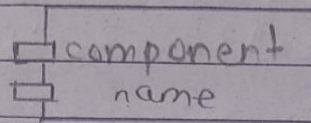 component
name